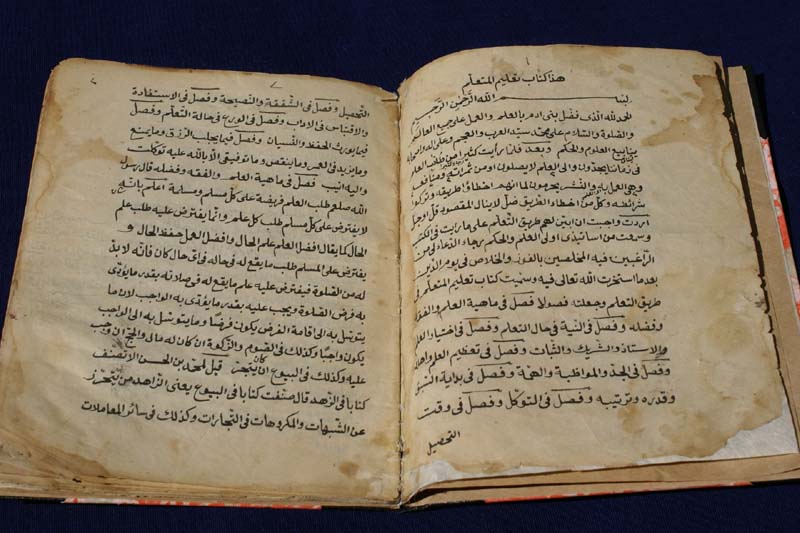 هذا كتاب تعليم المتعلم
بسم الله الرحمن الرحيم
الحمد لله الذى فضل بنى ادم بالعلم والعمل على جميع العالم
والصلوة والسلام على محمد سيد العرب والعجم وعلى اله واصحابه
ينابيع العلوم والحكم وبعد فلما رأيت كثيرا من طلاب العلم
فى زماننا يجدون والى العلم لا يصلون او من ثمراته ومنافعه
وهى العمل به والنشر يحرمون لما انهم اخطأوا طريقه وتركوا
شرائطه وكل من اخطاء الطريق ضل لا ينال المقصود قل او جل
اردت واحببت ان ابين لهم طريق التعلم على ما رايت فى الكتب
وسمعت من اساتيذى اولى العلم والحكم رجاء الدعاء لى من
الراغبين فيه المخلصين بالفوز والخلاص فى يوم الدين
بعدما استخرت الله تعالى فيه وسميت كتاب تعليم المتعلم فى
طريق التعلم وجعلته فصولا فصل فى ماهية العلم والفقه
وفضله وفصل فى النية فى حال التعلم وفصل فى اختيار العلم
والاستاذ والشريك والثبات وفصل فى تعظيم العلم واهله
وفصل فى الجد والمواظبة والهمة وفصل فى بداية السبق
وقدره وترتيبه وفصل فى التوكل وفصل فى وقت
التحصيل
التحصيل وفصل فى الشفقة والنصيحة وفصل فى الاستفادة
والاقتباس فى الاداب وفصل فى الورع فى حالة التعلم وفصل
فيما يورث الحفظ والنسيان وفصل فيما يجلب الرزق وما يمنع
وما يزيد فى العمر وما ينقص وما توفيقى الا بالله عليه توكلت
واليه انيب فصل فى ماهية العلم والفقه وفضله قال رسول
الله صلعم طلب العلم فريضة على كل مسلم ومسلمة اعلم بانه
لا يفترض على كل مسلم طلب كل علم وانما يفترض عليه طلب علم
الحال كما يقال افضل العلم علم الحال وافضل العمل حفظ الحال و
يفترض على المسلم طلب ما يقع له فى حاله فى اى حال كان فانه لا بد
له من الصلوة فيفترض عليه علم ما يقع له فى صلاته بقدر ما يؤدى
به فرض الصلوة ويجب عليه بقدر ما يؤدى به الواجب لان ما
يتوسل به الى اقامة الفرض يكون فرضا وما يتوسل به الى الواجب
يكون واجبا وكذلك فى الصوم والزكوة ان كان له مال والحج ان وجب
عليه وكذلك فى البيوع ان كان يتجر قيل لمحمد بن الحسن الا تصنف
كتابا فى الزهد قال صنفت كتابا فى البيوع يعنى الزاهد من يتحرز
عن الشبهات والمكروهات فى التجارات وكذلك فى سائر المعاملات